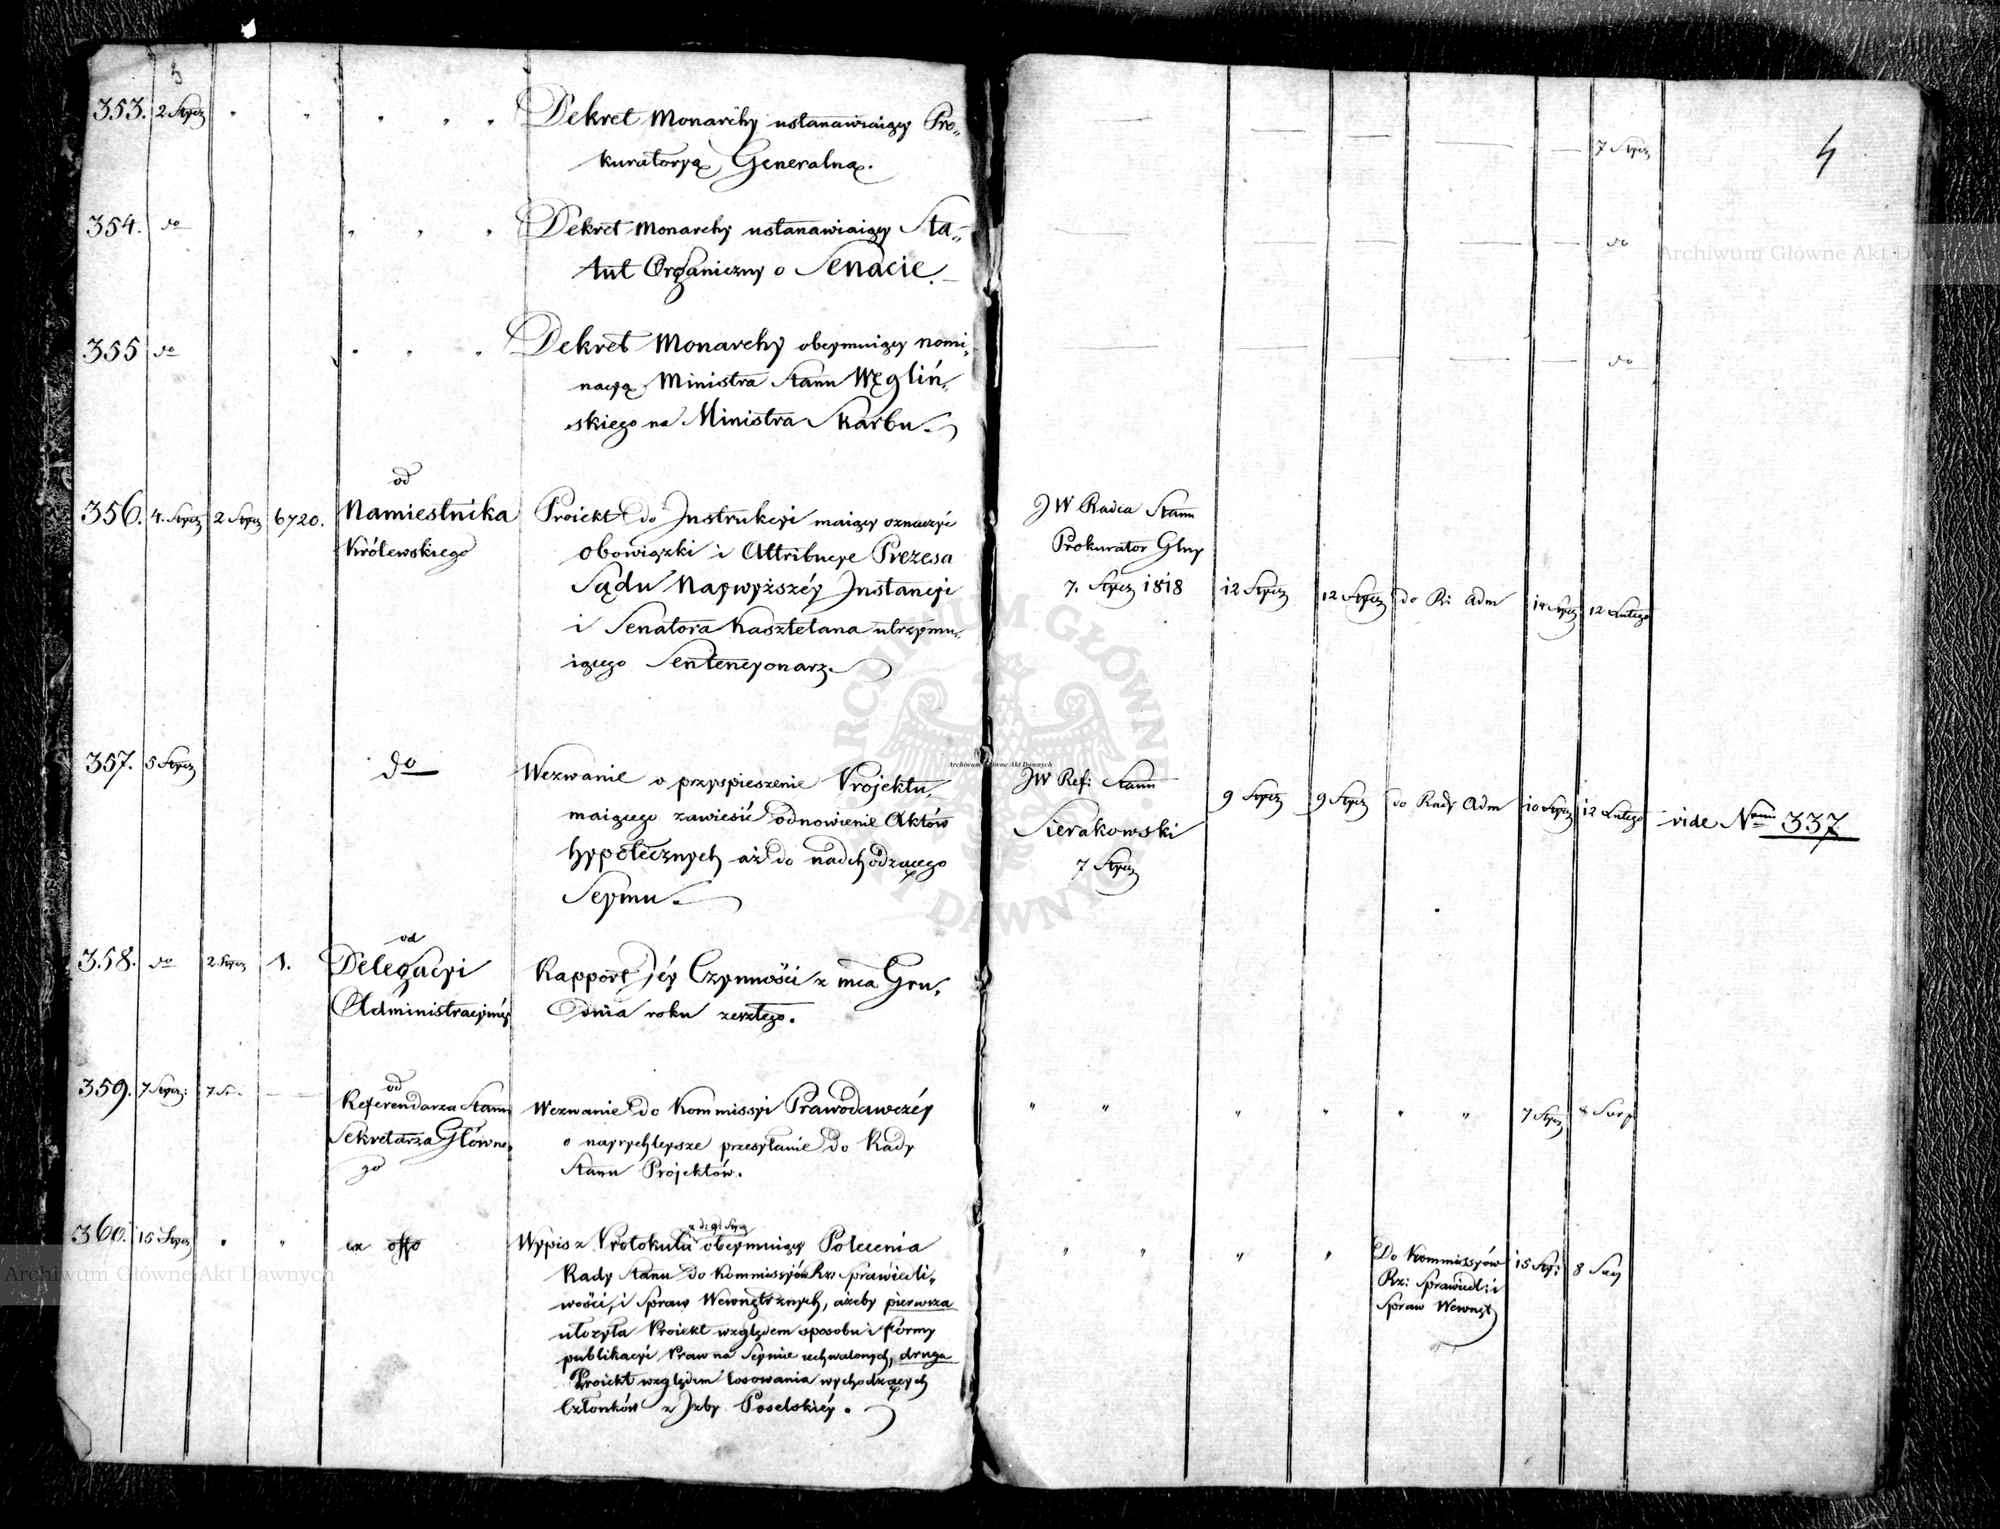 3
353. 2 Stycz " " " " " Dekret Monarchy ustanawiaiący Pro„
kuratoryą Generalną. — — — — — 7 Stycz
4
354. do " " " Dekret Monarchy ustanawiaiący Sta„
tut Organiczny o Senacie. — — — — — do
355 do " " " Dekret Monarchy obeymuiący nomi„
nacyą Ministra Stanu Węgliń„
skiego na Ministra Skarbu. — — — — — do
356. 4. Stycz 2 Stycz 6720. od
Namiestnika
Królewskiego
Proiekt do Instrukcyi maiący oznaczyć
obowiązki i Attribucye Prezesa
Sądu Naywyższéy Instancyi
i Senatora Kasztelana utrzymu„
iącego Sentencyonarz.
JW Radca Stanu
Prokurator Glny
7. Stycz 1818 12 Stycz 12 Stycz do R: Adm 14 Stycz 12 Lutego
357. 5 Stycz do
Wezwanie o przyspieszenie Projektu
maiącego zawiesić odnowienie Aktów
hypotecznych aż do nadchodzącego
Seymu.
JW Ref: Stanu
Sierakowski
7 Stycz
9 Stycz 9 Stycz do Rady Adm 10 Stycz 12 Lutego vide Num 337
358. do 2 Stycz 1. od
Delegacyi
Administracyinéy
Rapport Jéy Czynności z mca Gru„
dnia roku zeszłego.
359. 7 Stycz: — — od
Referendarza Stanu
Sekretarza Główne„
go
Wezwanie do Kommissyi Prawodawczéy
o nayrychleysze przesyłanie do Rady
Stanu Projektów.
" " " " " " 7 Stycz 8 Sierp
360. 15 Stycz " " ex offo
z d: 9: Stycz
Wypis z Protokułu obeymuiący Polecenia
Rady Stanu do Kommissyów Rz: Sprawiedli„
wości, i Spraw Wewnętrznych, ażeby pierwsza
ułożyła Proiekt względem sposobu i formy
publikacyi Praw na Seymie uchwalonych, druga
Proiekt względem losowania wychodzących
Członków z Izby Poselskiéy.
" " " "
Do Kommissyów
Rz: Sprawiedl: i
Spraw Wewnęt
15 Sty: 8
Archiwum Główne Akt Dawnych
Archiwum Główne Akt Dawnych
Archiwum Główne Akt Dawnych
ARCHIWUM GŁÓWNE AKT DAWNYCH